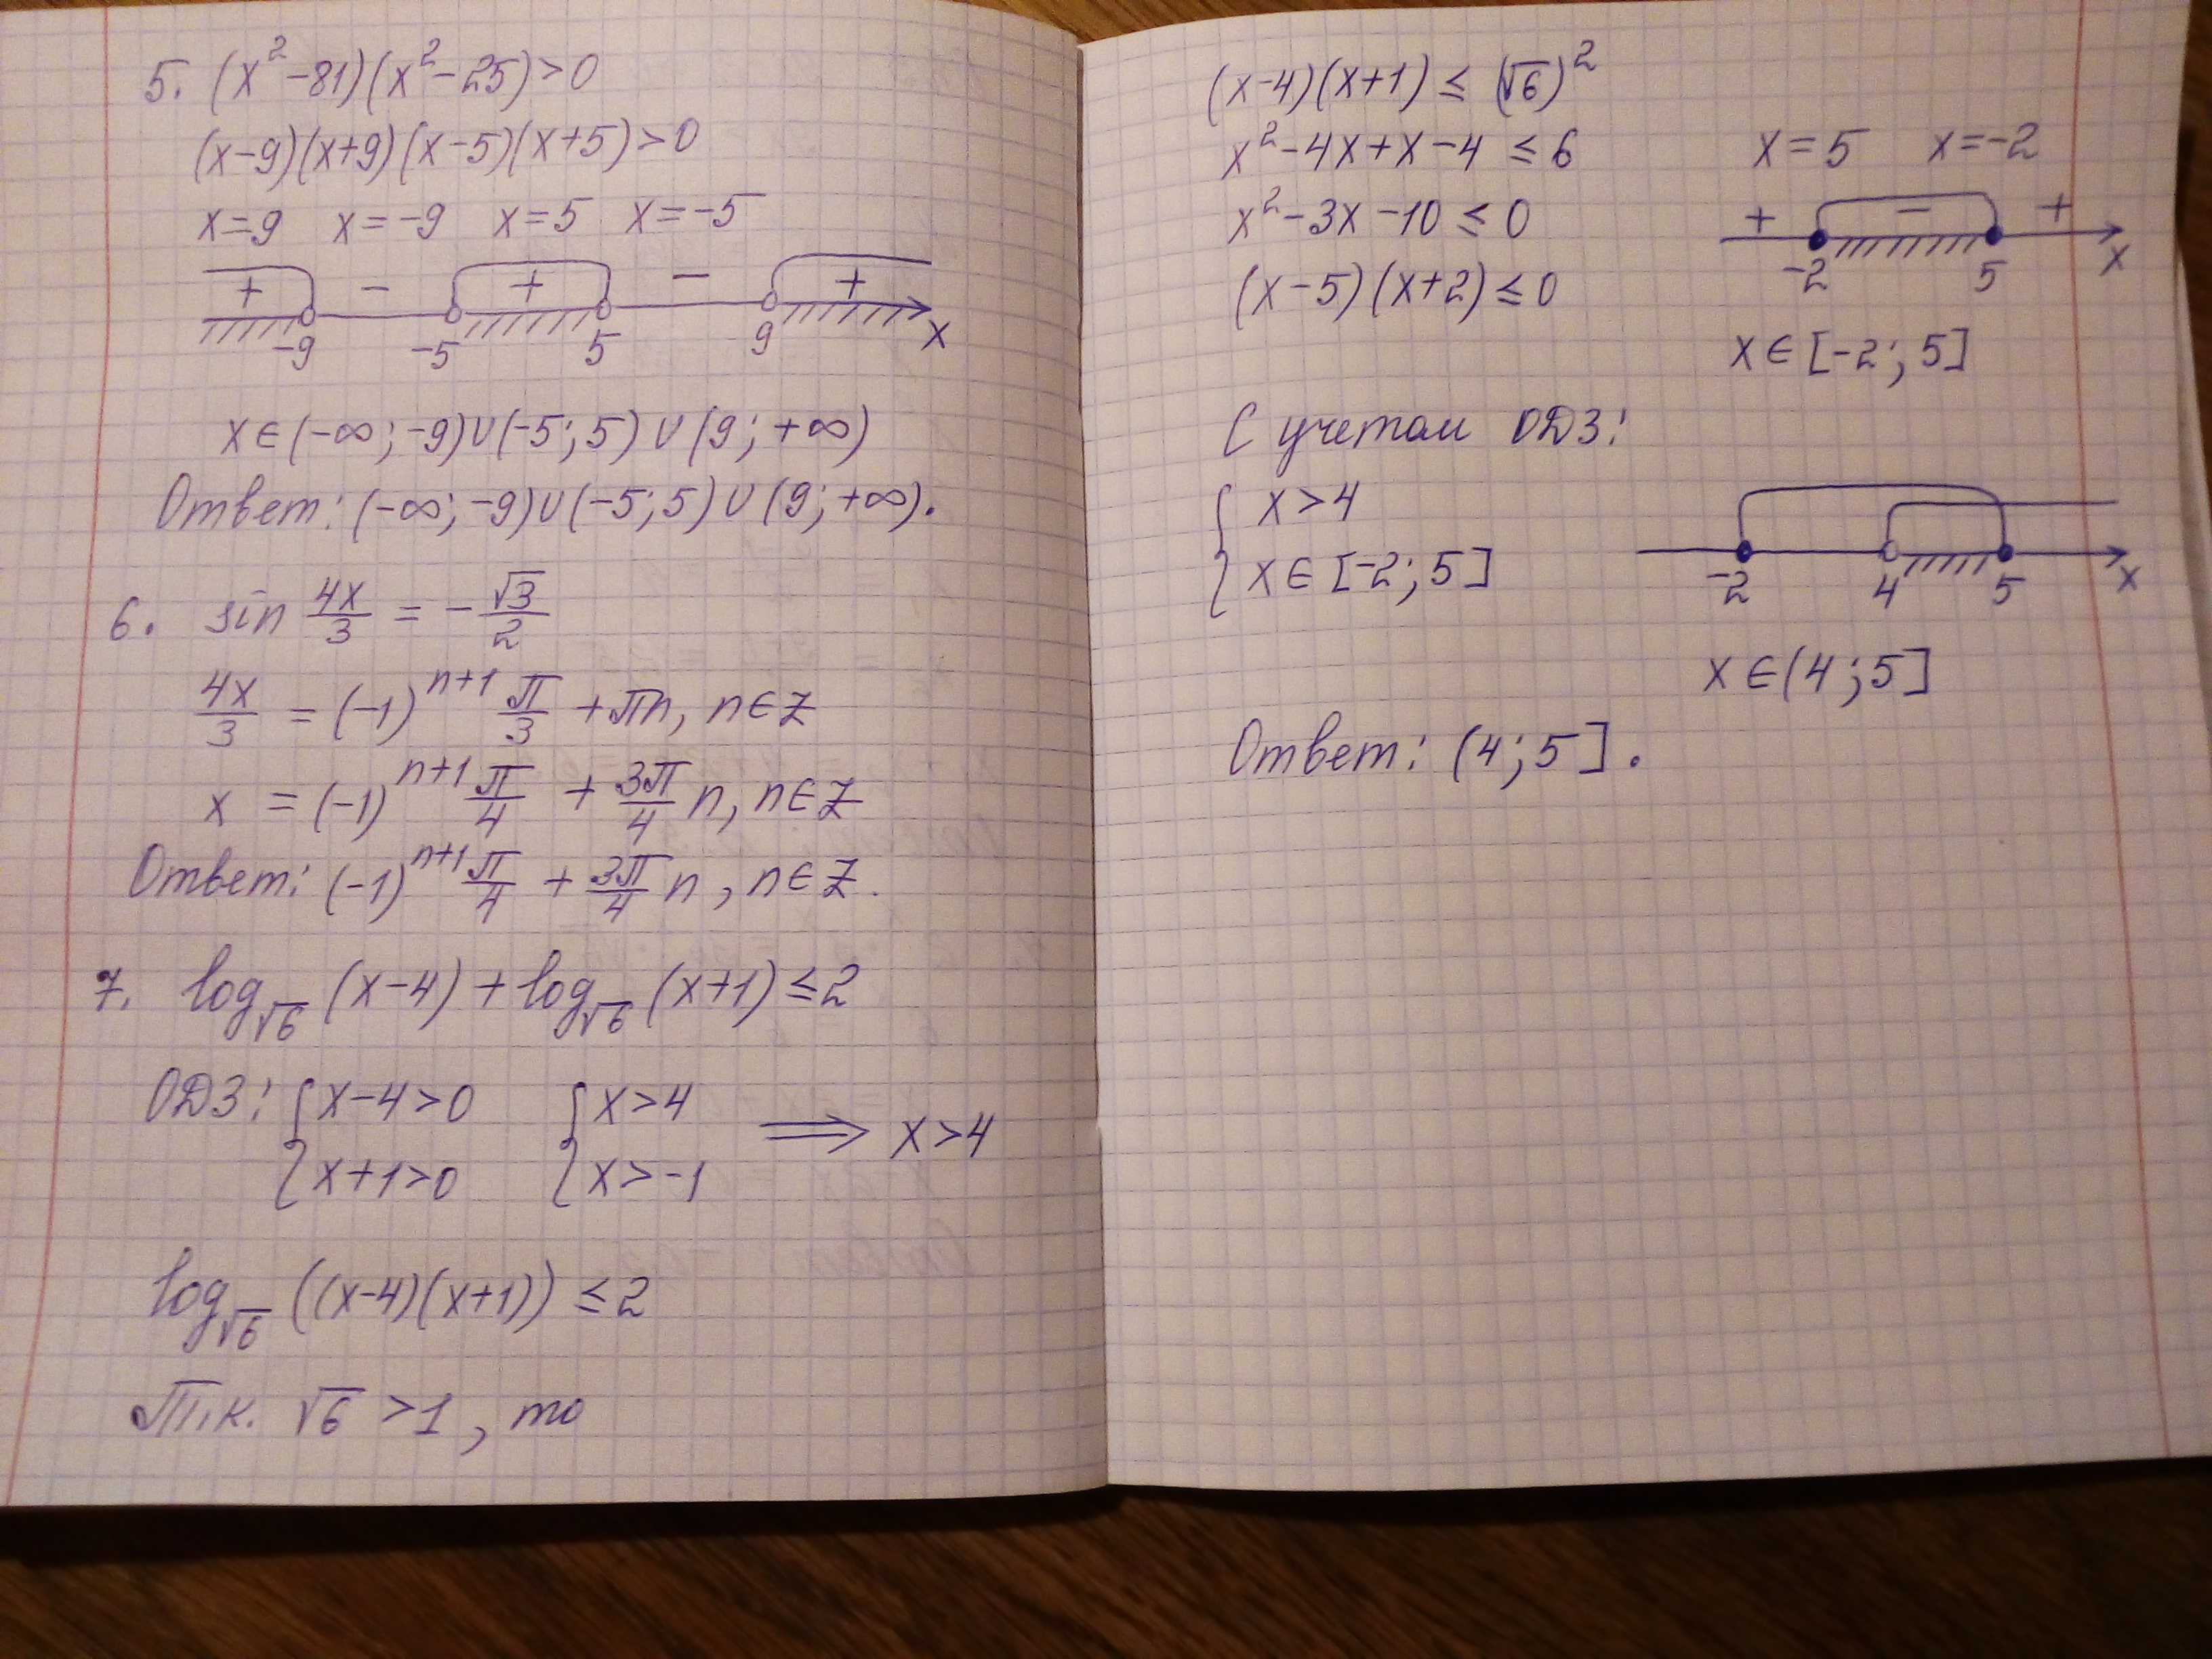 5. (x²-81)(x²-25)>0
(x-9)(x+9)(x-5)(x+5)>0
x=9 x=-9 x=5 x=-5
+ - + - +
-9 -5 5 9 x
x∈(-∞;-9)∪(-5;5)∪(9;+∞)
Ответ: (-∞;-9)∪(-5;5)∪(9;+∞).
6. sin 4x/3 = -√3/2
4x/3 = (-1)ⁿ⁺¹ π/3 + πn, n∈Z
x = (-1)ⁿ⁺¹ π/4 + 3π/4 n, n∈Z
Ответ: (-1)ⁿ⁺¹ π/4 + 3π/4 n, n∈Z.
7. log_√6 (x-4) + log_√6 (x+1) ≤ 2
ОДЗ: { x-4>0 { x>4 ⟹ x>4
x+1>0 x>-1
log_√6 ((x-4)(x+1)) ≤ 2
Т.к. √6 >1, то
(x-4)(x+1) ≤ (√6)²
x²-4x+x-4 ≤ 6
x²-3x-10 ≤ 0
(x-5)(x+2) ≤ 0
x=5 x=-2
+ - +
-2 5 x
x∈[-2;5]
С учетом ОДЗ:
{ x>4
x∈[-2;5]
-2 4 5 x
x∈(4;5]
Ответ: (4;5].